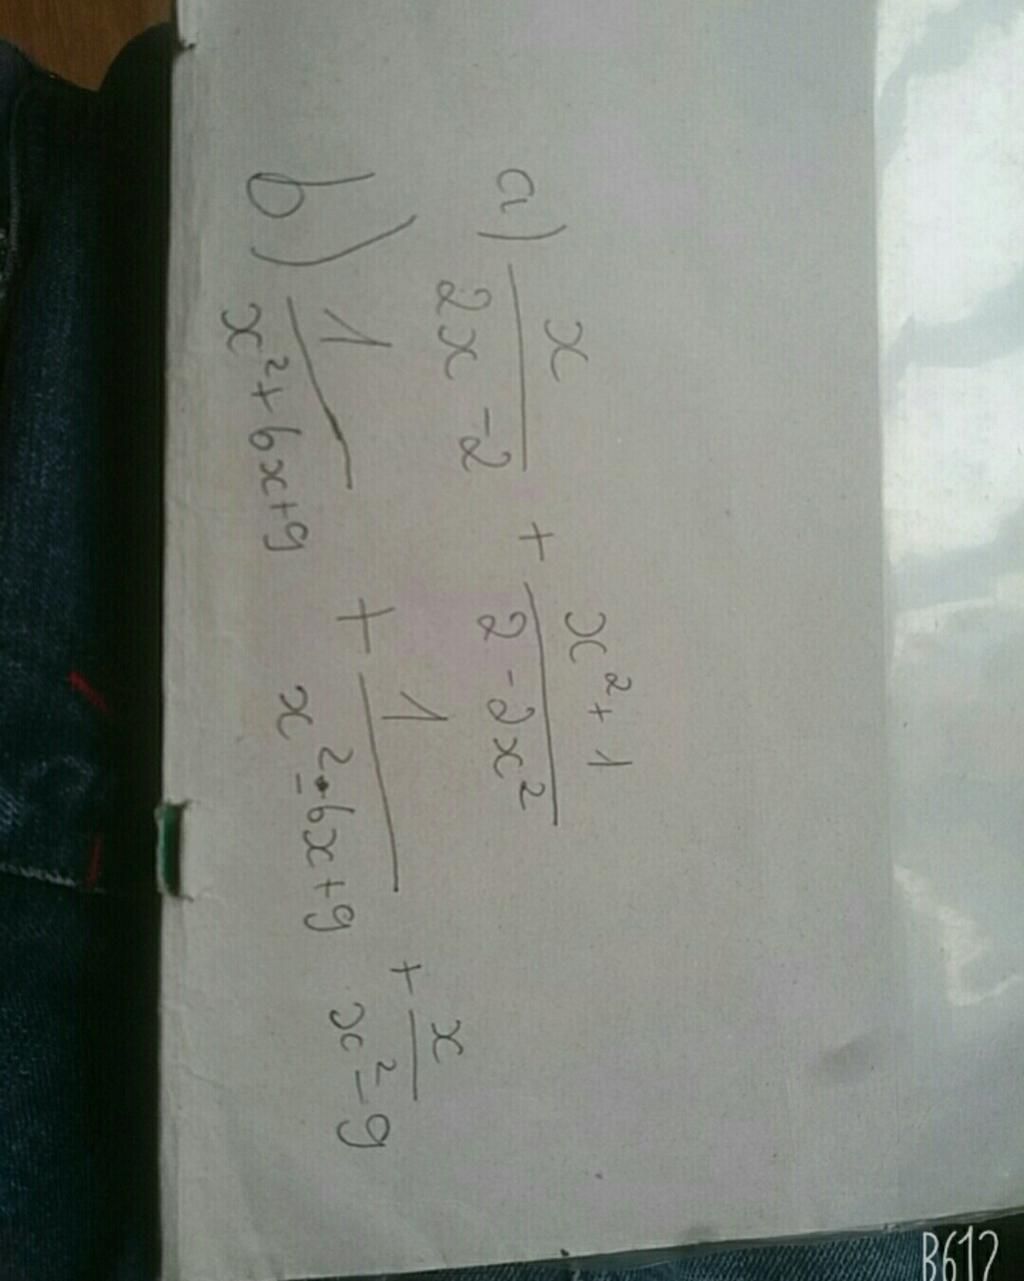 a) x/(2x - 2) + (x² + 1)/(2 - 2x²)
b) 1/(x² + 6x + 9) + 1/(x² - 6x + 9) + x/(x² - 9)
B612